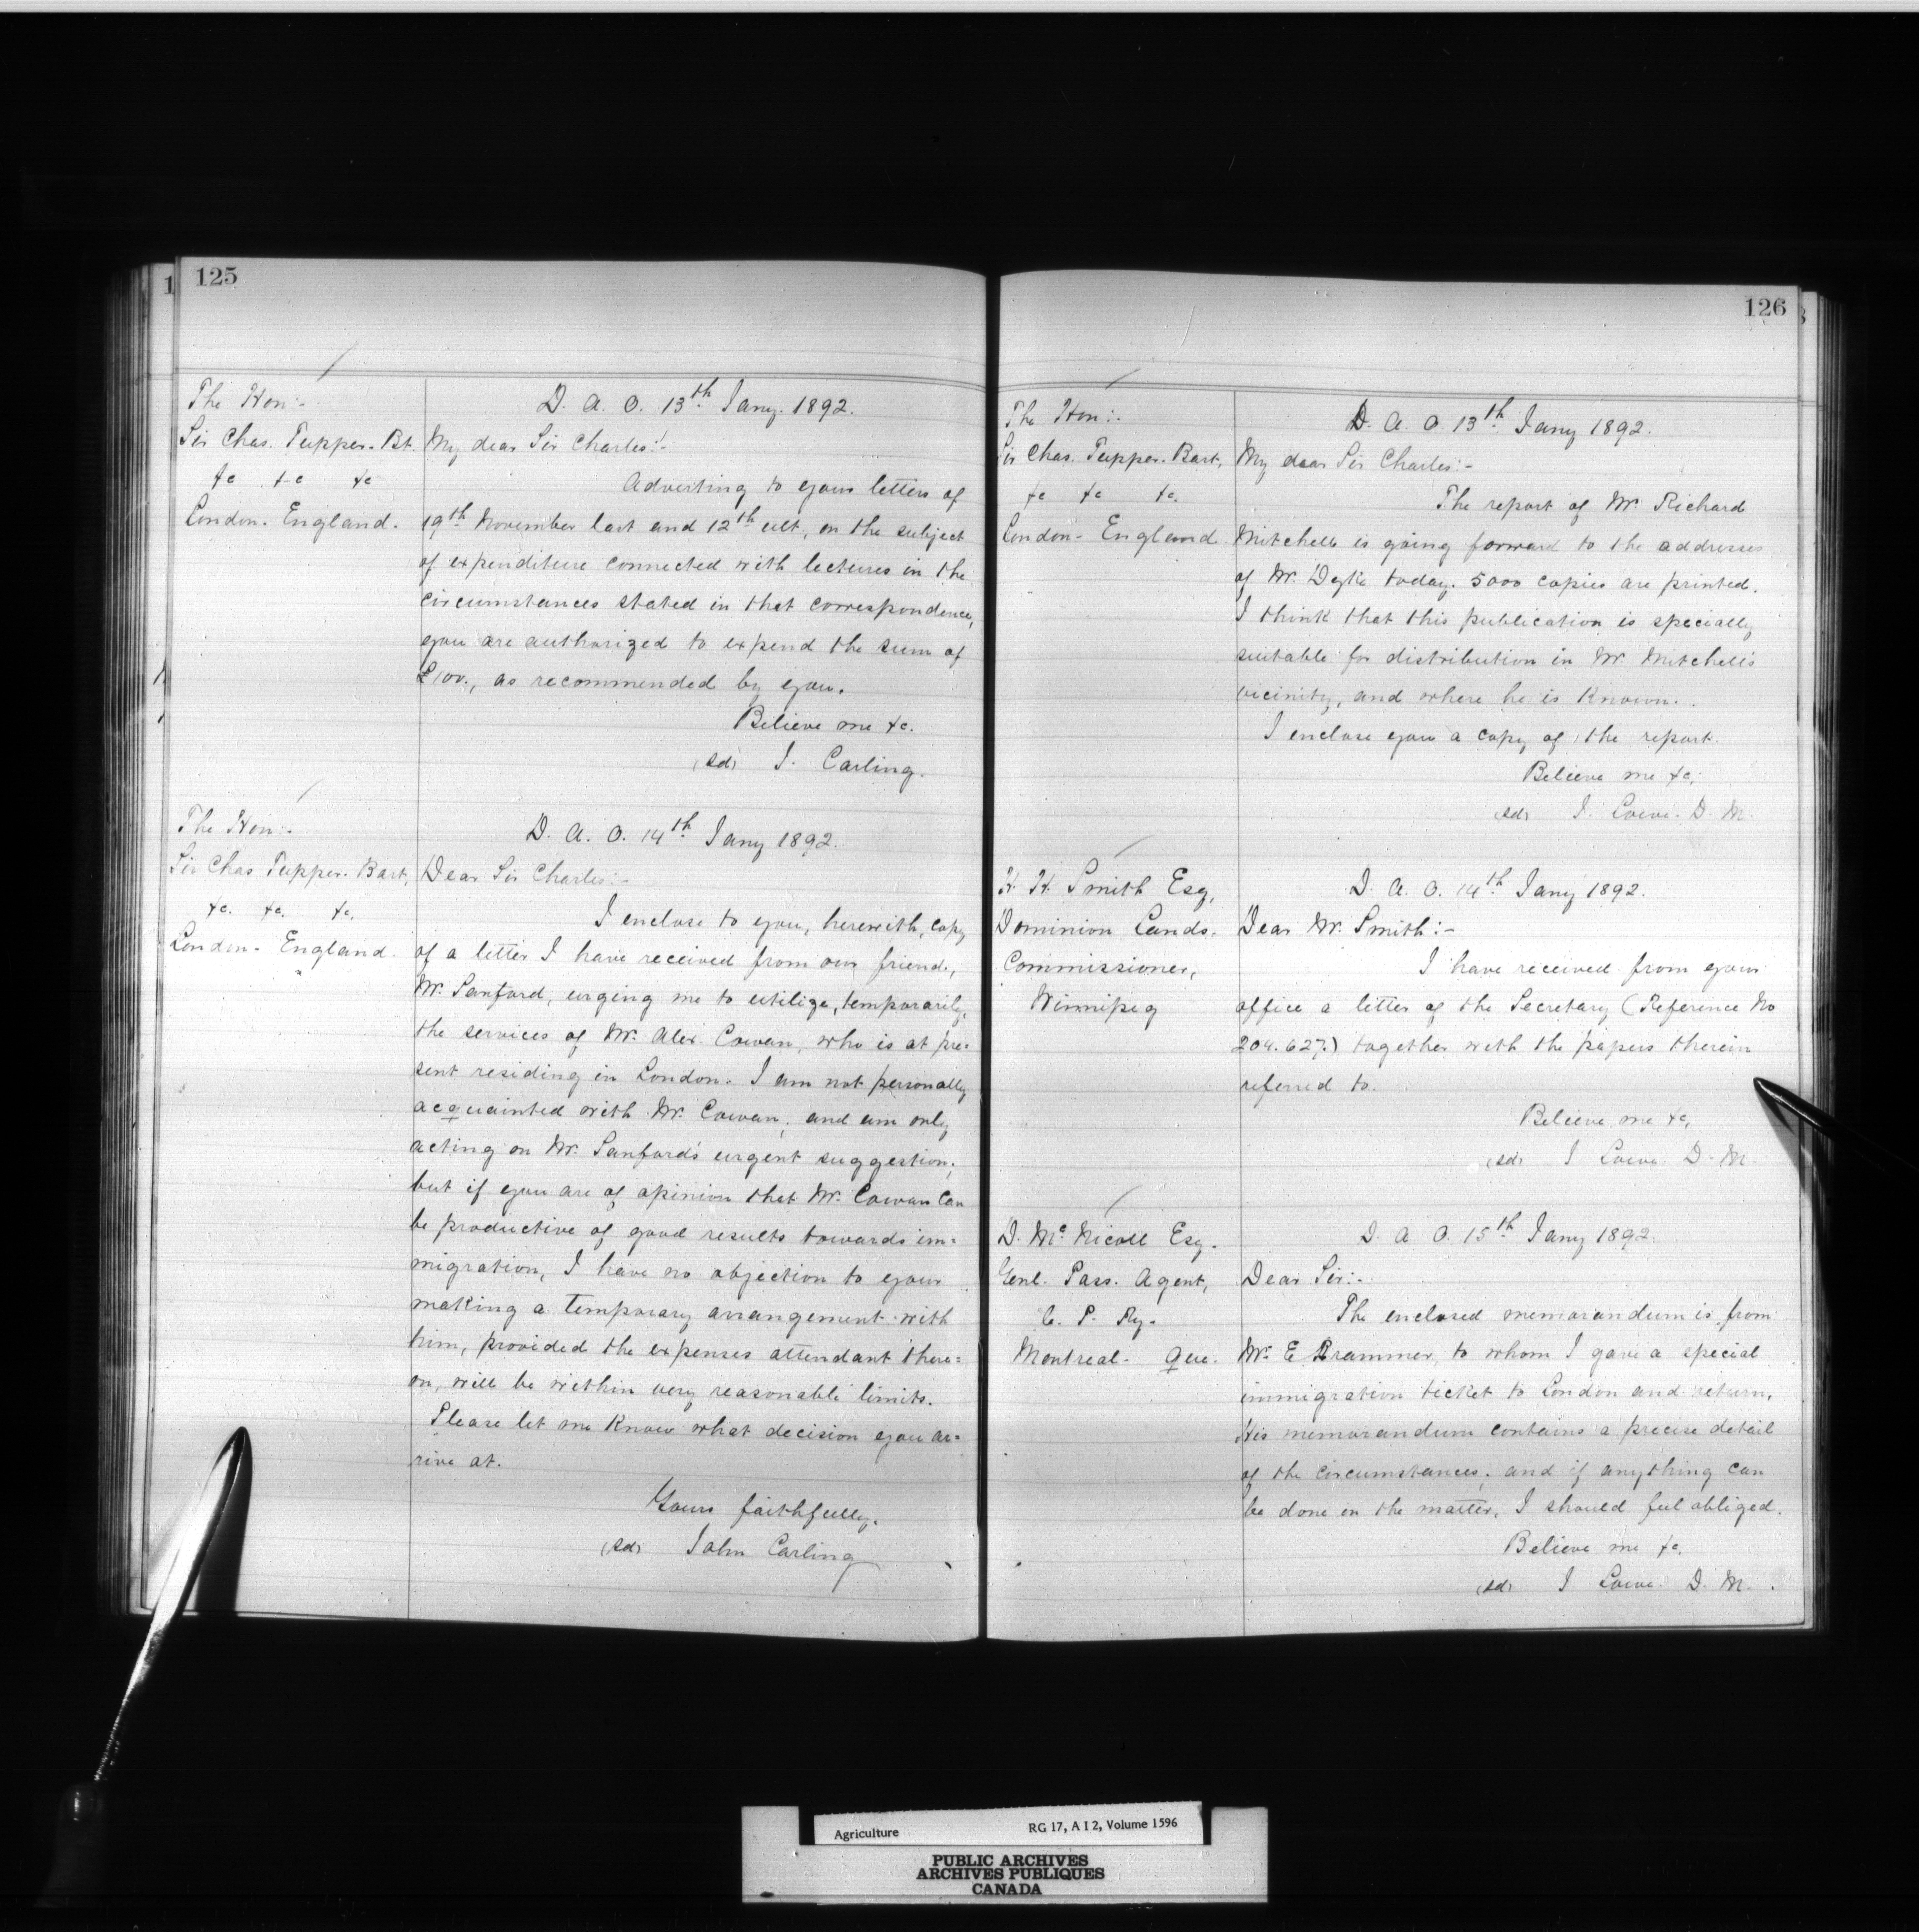 125
The Hon:-
Sir Chas. Tupper. Bt.
&c &c &c
London. England.
D. A. O. 13th Jany. 1892.
My dear Sir Charles:-
Adverting to your letters of
19th November last and 12th ult, on the subject
of expenditure connected with lectures in the
circumstances stated in that correspondence,
you are authorized to expend the sum of
£100., as recommended by you.
Believe me &c.
(sd) J. Carling.
The Hon:-
Sir Chas Tupper. Bart,
&c. &c. &c.
London- England.
D. A. O. 14th Jany 1892.
Dear Sir Charles:-
I enclose to you, herewith, copy
of a letter I have received from our friend,
Mr. Sanford, urging me to utilize, temporarily,
the services of Mr. Alex. Cowan, who is at pre=
sent residing in London. I am not personally
acquainted with Mr. Cowan, and am only
acting on Mr. Sanford's urgent suggestion;
but if you are of opinion that Mr. Cowan can
be productive of good results towards im=
migration, I have no objection to your
making a temporary arrangement with
him, provided the expenses attendant there=
on, will be within very reasonable limits.
Please let me know what decision you ar=
rive at.
Yours faithfully.
(sd) John Carling
126
The Hon:.
Sir Chas. Tupper. Bart,
&c &c &c.
London- England
D. A. O. 13th Jany 1892.
My dear Sir Charles:-
The report of Mr. Richard
Mitchell is going forward to the addresses
of Mr. Dyke today. 5000 copies are printed.
I think that this publication is specially
suitable for distribution in Mr. Mitchell's
vicinity, and where he is known.
I enclose you a copy of the report.
Believe me &c,
(sd) J. Lowe. D. M.
H. H. Smith Esq,
Dominion Lands.
Commissioner,
Winnipeg
D. A. O. 14th Jany 1892.
Dear Mr. Smith:-
I have received from your
office a letter of the Secretary (Reference No
204.627.) together with the papers therein
referred to.
Believe me &c,
(sd) J Lowe. D. M.
D. Mc Nicoll Esq.
Genl. Pass. Agent,
C. P. Ry.
Montreal. Que.
D. A. O. 15th Jany 1892.
Dear Sir:-
The enclosed memorandum is from
Mr. E to whom I gave a special
immigration ticket to London and return.
His memorandum contains a precise detail
of the circumstances; and if anything can
be done in the matter, I should feel obliged.
Believe me &c.
(sd) J Lowe. D. M.
Agriculture RG 17, A I 2, Volume 1596
PUBLIC ARCHIVES
ARCHIVES PUBLIQUES
CANADA